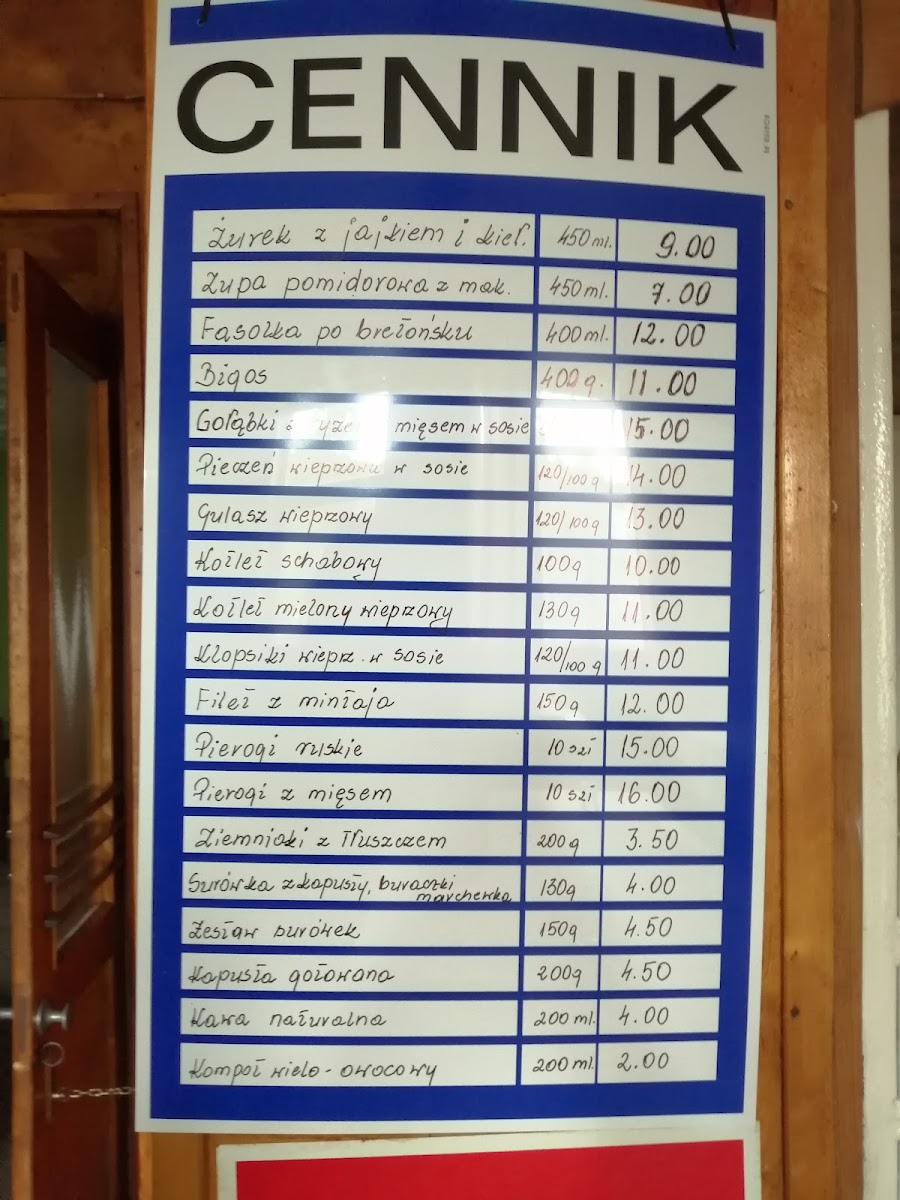 CENNIK
Żurek z jajkiem i kieł. 450 ml. 9.00
Zupa pomidorowa z mak. 450 ml. 7.00
Fasolka po bretońsku 400 ml. 12.00
Bigos 400 g. 11.00
Gołąbki z ryżem mięsem w sosie 15.00
Pieczeń wieprzowa w sosie 120/100 g 14.00
Gulasz wieprzowy 120/100 g 13.00
Kotlet schabowy 100g 10.00
Kotlet mielony wieprzowy 130g 11.00
Klopsiki wieprz. w sosie 120/100 g 11.00
Filet z mintaja 150g 12.00
Pierogi ruskie 10 szt 15.00
Pierogi z mięsem 10 szt 16.00
Ziemniaki z tłuszczem 200g 3.50
Surówka z kapusty, buraczki marchewka 130g 4.00
Zestaw surówek 150g 4.50
Kapusta gotowana 200g 4.50
Kawa naturalna 200 ml. 4.00
Kompot wielo-owocowy 200 ml. 2.00